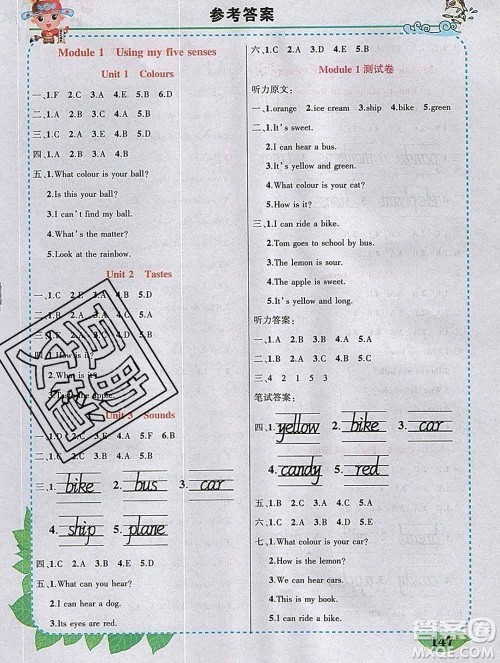 参考答案
Module 1 Using my five senses
Unit 1 Colours
一、1.F 2.C 3.A 4.E 5.B 6.D
二、1.C 2.A 3.A 4.B 5.C
三、1.B 2.A 3.B 4.B 5.B
四、1.A 2.A 3.A 4.B
五、1.What colour is your ball?
2.Is this your ball?
3.I can't find my ball.
4.What's the matter?
5.Look at the rainbow.
Unit 2 Tastes
一、1.C 2.E 3.A 4.B 5.D
1.How is it?
2.What is it?
Unit 3 Sounds
一、1.C 2.D 3.A 4.B 5.D
二、1.B 2.A 3.A 4.C 5.B
三、1.bike 2.bus 3.car
4.ship 5.plane
四、1.C 2.E 3.A 4.B 5.D
五、1.What can you hear?
2.I can hear a dog.
3.Its eyes are red.
六、1.C 2.A 3.A 4.A 5.B
Module 1 测试卷
听力原文：
一、1.orange 2.ice cream 3.ship 4.bike 5.green
二、1.It's sweet.
2.I can hear a bus.
3.It's yellow and green.
4.What colour is your cat?
5.I can hear a bike.
三、1.I can ride a bike.
2.Tom goes to school by bus.
3.The lemon is sour.
4.The apple is sweet.
5.It's yellow and long.
听力答案：
一、1.A 2.A 3.B 4.B 5.A
二、1.A 2.B 3.A 4.B 5.B
三、4 2 1 5 3
笔试答案：
四、1.yellow 2.bike 3.car
4.candy 5.red
五、1.B 2.A 3.C 4.C 5.A
六、1.C 2.E 3.A 4.B 5.D
七、1.What colour is your car?
2.How is the lemon?
3.We can hear cars.
4.This is my book.
5.I can hear a ship.
147